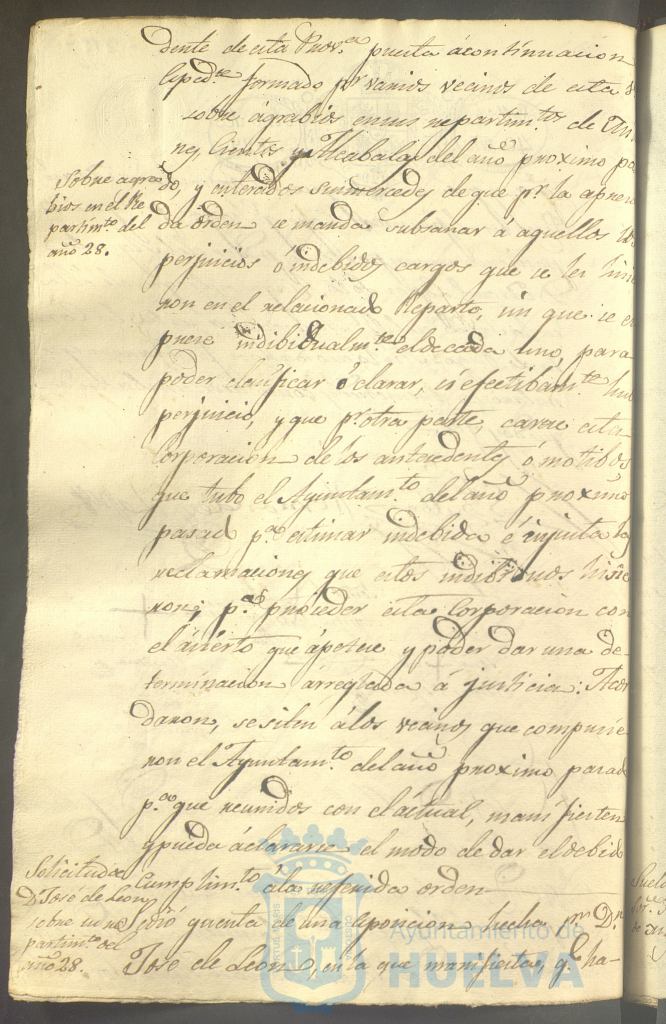 dente de esta Prov.ª puesta ácontinuacion
Esped.te formado p.r varios vecinos de esta
sobre ágrabios en sus repartim.tos de
Cientos y Alcabalas del año proximo
Sobre agra
bios en el Re
partim.to del
año 28.
do, y enterados sus mercedes de que p.r la
da órden se manda subsanar á aquellos los
perjuicios ó indebidos cargos que se les
ron en el relacionado Reparto, sin que se
prese indibidualm.te el de cada uno, para
poder clarificar ó clarar, si efectibam.te
perjuicio, y que p.r otra parte, carece esta
Corporacion de los antecedentes ó motibos
que tubo el Ayuntam.to del año proximo
pasado p.a estimar indebida é injusta las
reclamaciones que estos indibiduos hisie
ron; p.a proceder esta Corporacion con
el ácierto que ápetece y poder dar una de
terminacion árreglada á justicia: Acor
daron, se siten álos vecinos que compusie
ron el Ayuntam.to del año proximo pasado
p.a que reunidos con el áctual, manifiesten
y pueda áclararse el modo de dar el debido
Cumplim.to ála referida orden
Solicitud de
D. José de Leon
sobre su re
partim.to del
año 28.
se dió quenta de una esposicion hecha p.r D.n
José de Leon, en la que manifiesta, q.e ha-
Ayuntamiento de
HUELVA